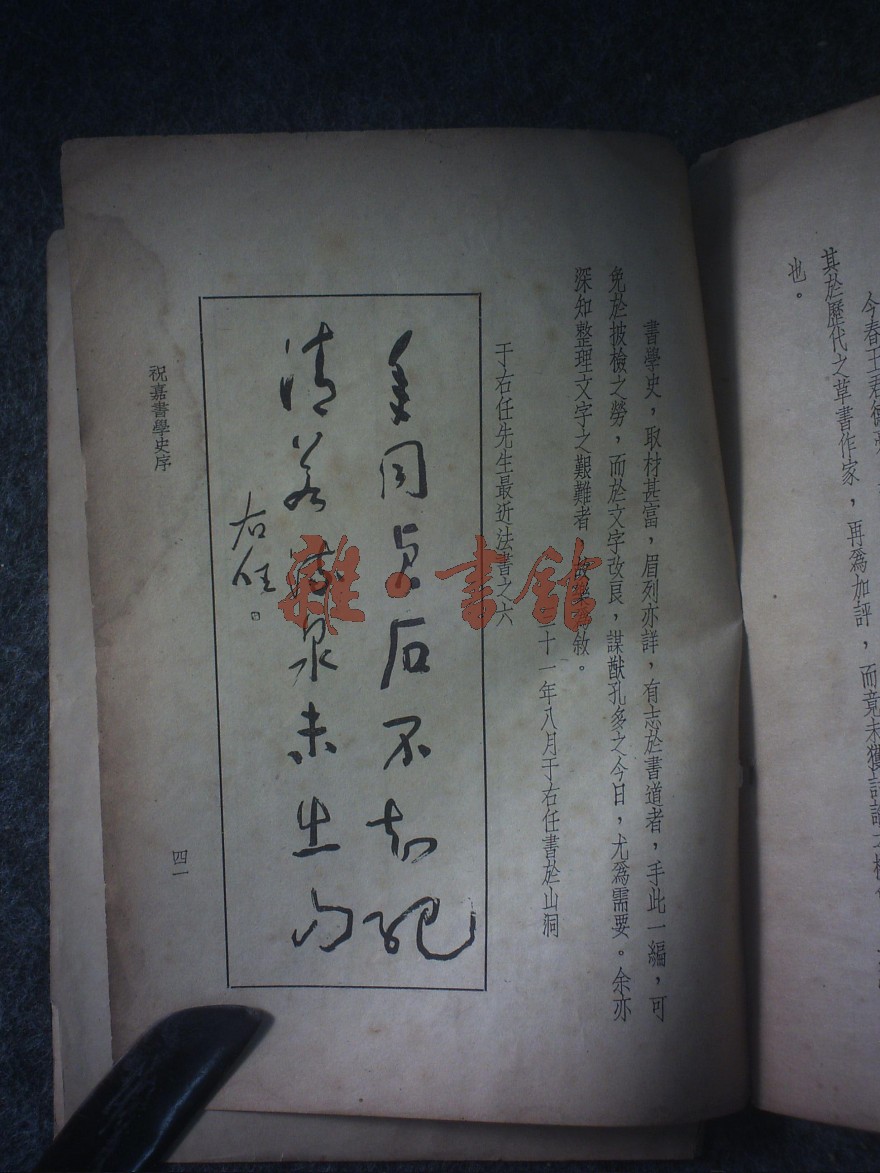 今春王君
其於歷代之草書作家，再爲加評，而竟未獲討論之機
也。
書學史，取材甚富，眉列亦詳，有志於書道者，手此一編，可
免於披檢之勞，而於文字改良，謀猷孔多之今日，尤爲需要。余亦
深知整理文字之艱難者，敘。
十一年八月于右任書於山洞
于右任先生最近法書之六
壽同貞石不知紀
清若泉未出山
右任
祝嘉書學史序
四一
雜·書館